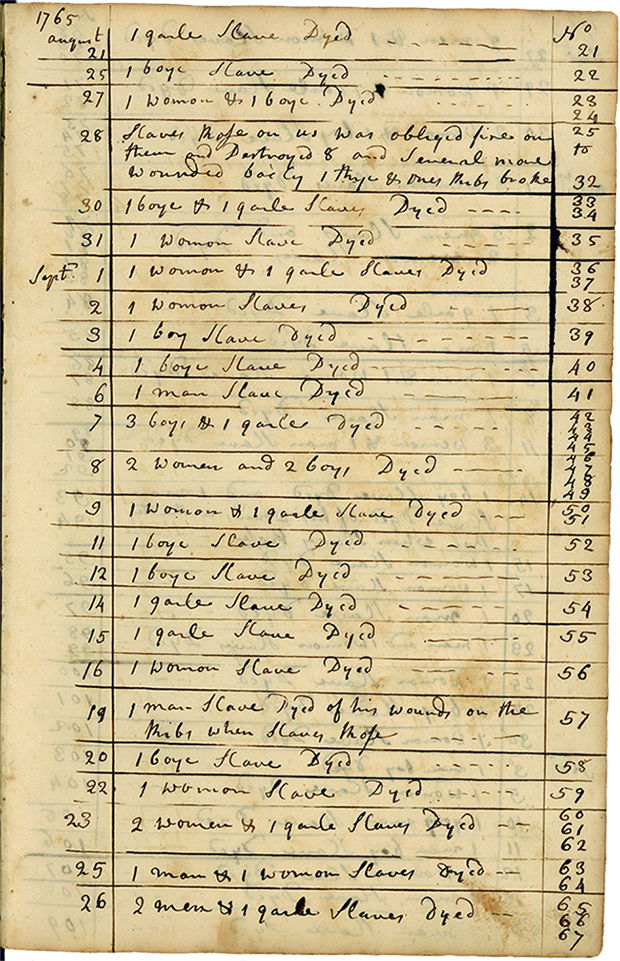 1765 No
august 21 1 garle Slave Dyed 21
25 1 boye Slave Dyed 22
27 1 Womon & 1 boye Dyed 23
24
28 Slaves Rose on us was obliged fire on 25
them and Destroyed 8 and Several more to
wounded badly 1 Thye & ones Ribs broke 32
30 1 boye & 1 garle Slaves Dyed 33
34
31 1 Womon Slave Dyed 35
Sept. 1 1 Womon & 1 garle Slaves Dyed 36
37
2 1 Womon Slaves Dyed 38
3 1 boy Slave Dyed 39
4 1 boye Slave Dyed 40
6 1 man Slave Dyed 41
7 3 boys & 1 garle Dyed 42
43
44
45
8 2 Women and 2 boys Dyed 46
47
48
49
9 1 Womon & 1 garle Slave Dyed 50
51
11 1 boye Slave Dyed 52
12 1 boye Slave Dyed 53
14 1 garle Slave Dyed 54
15 1 garle Slave Dyed 55
16 1 Womon Slave Dyed 56
19 1 man Slave Dyed of his wounds on the 57
Ribs when Slaves Rose
20 1 boye Slave Dyed 58
22 1 Womon Slave Dyed 59
23 2 Women & 1 garle Slaves Dyed 60
61
62
25 1 man & 1 Womon Slaves Dyed 63
64
26 2 men & 1 garle Slaves Dyed 65
66
67